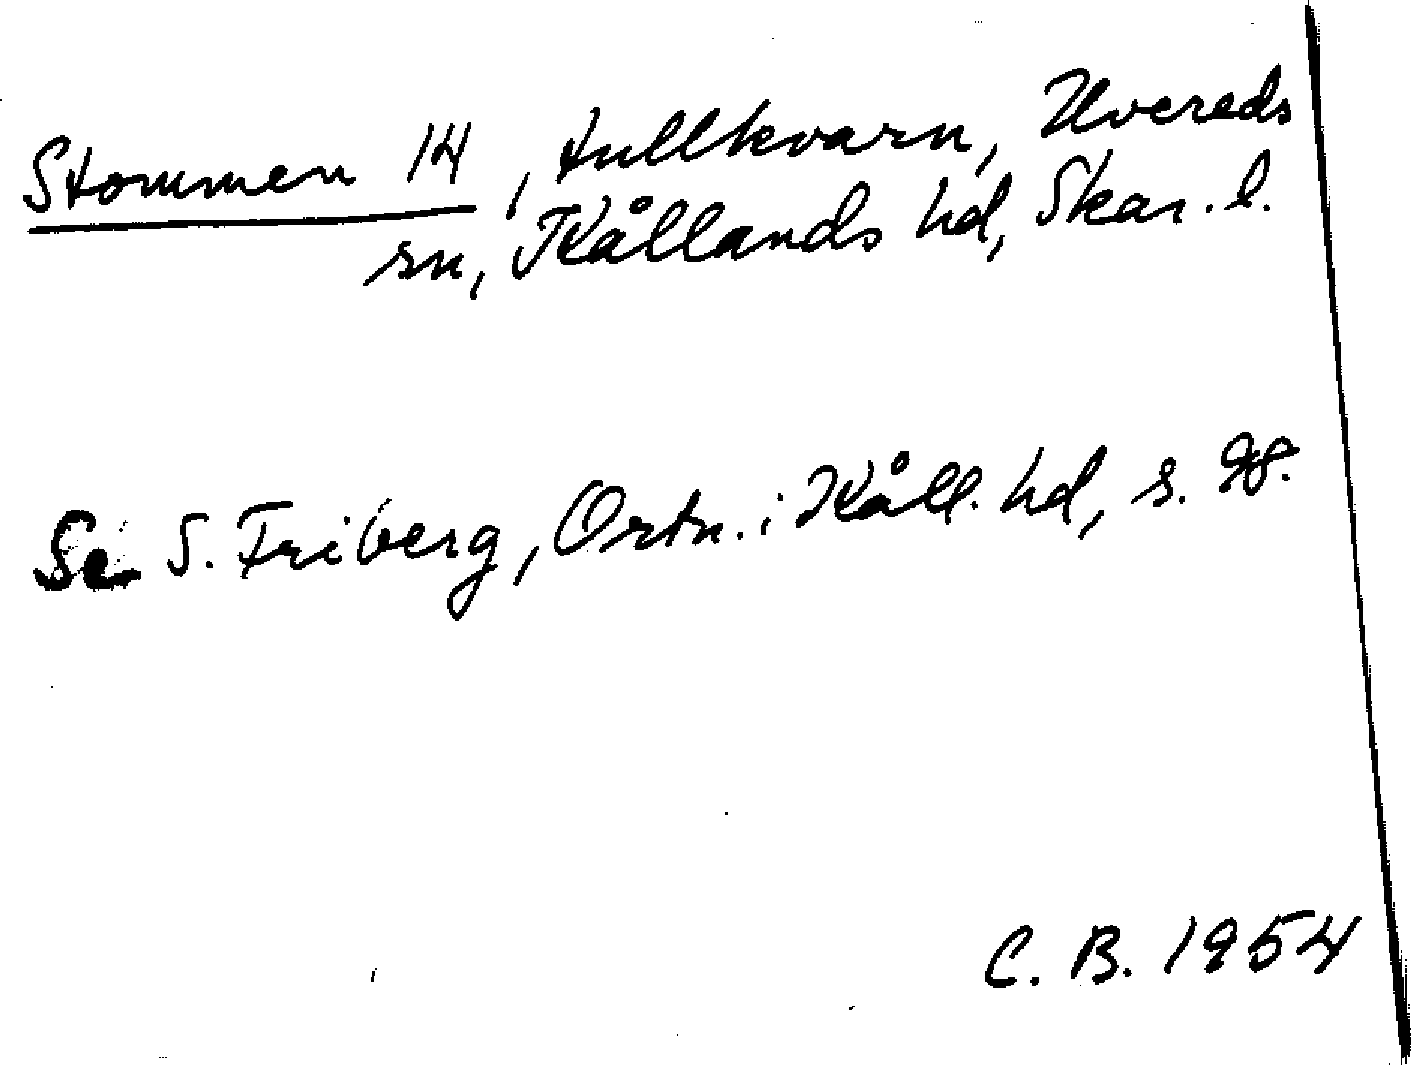 Stommen 14, tullkvarn, Hvereds
sn, Kållands hd, Skar. l.
Se S. Friberg, Ortn. i Kåll. hd, s. 98.
C. B. 1954